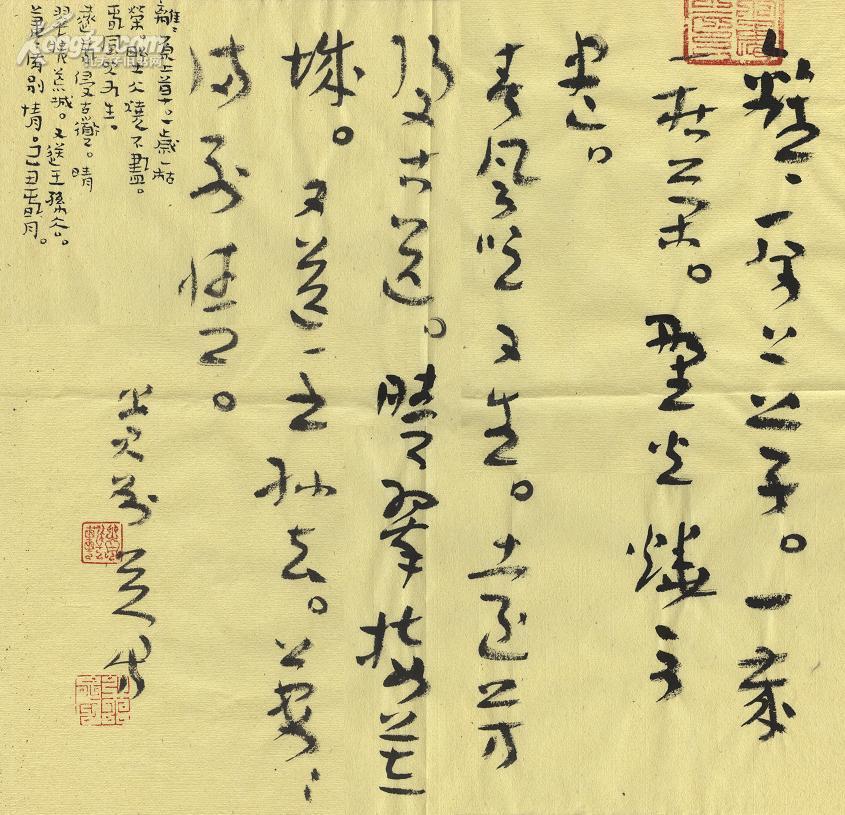 離〻原上草。一歲
一枯榮。野火燒不
盡。
春風吹又生。遠芳
侵古道。晴翠接荒
城。又送王孫去。萋〻
滿別情。
離〻原上草。一歲一枯
榮。野火燒不盡。
春風吹又生。
遠芳侵古道。晴
翠接荒城。又送王孫去。
萋〻滿別情。己丑春月。